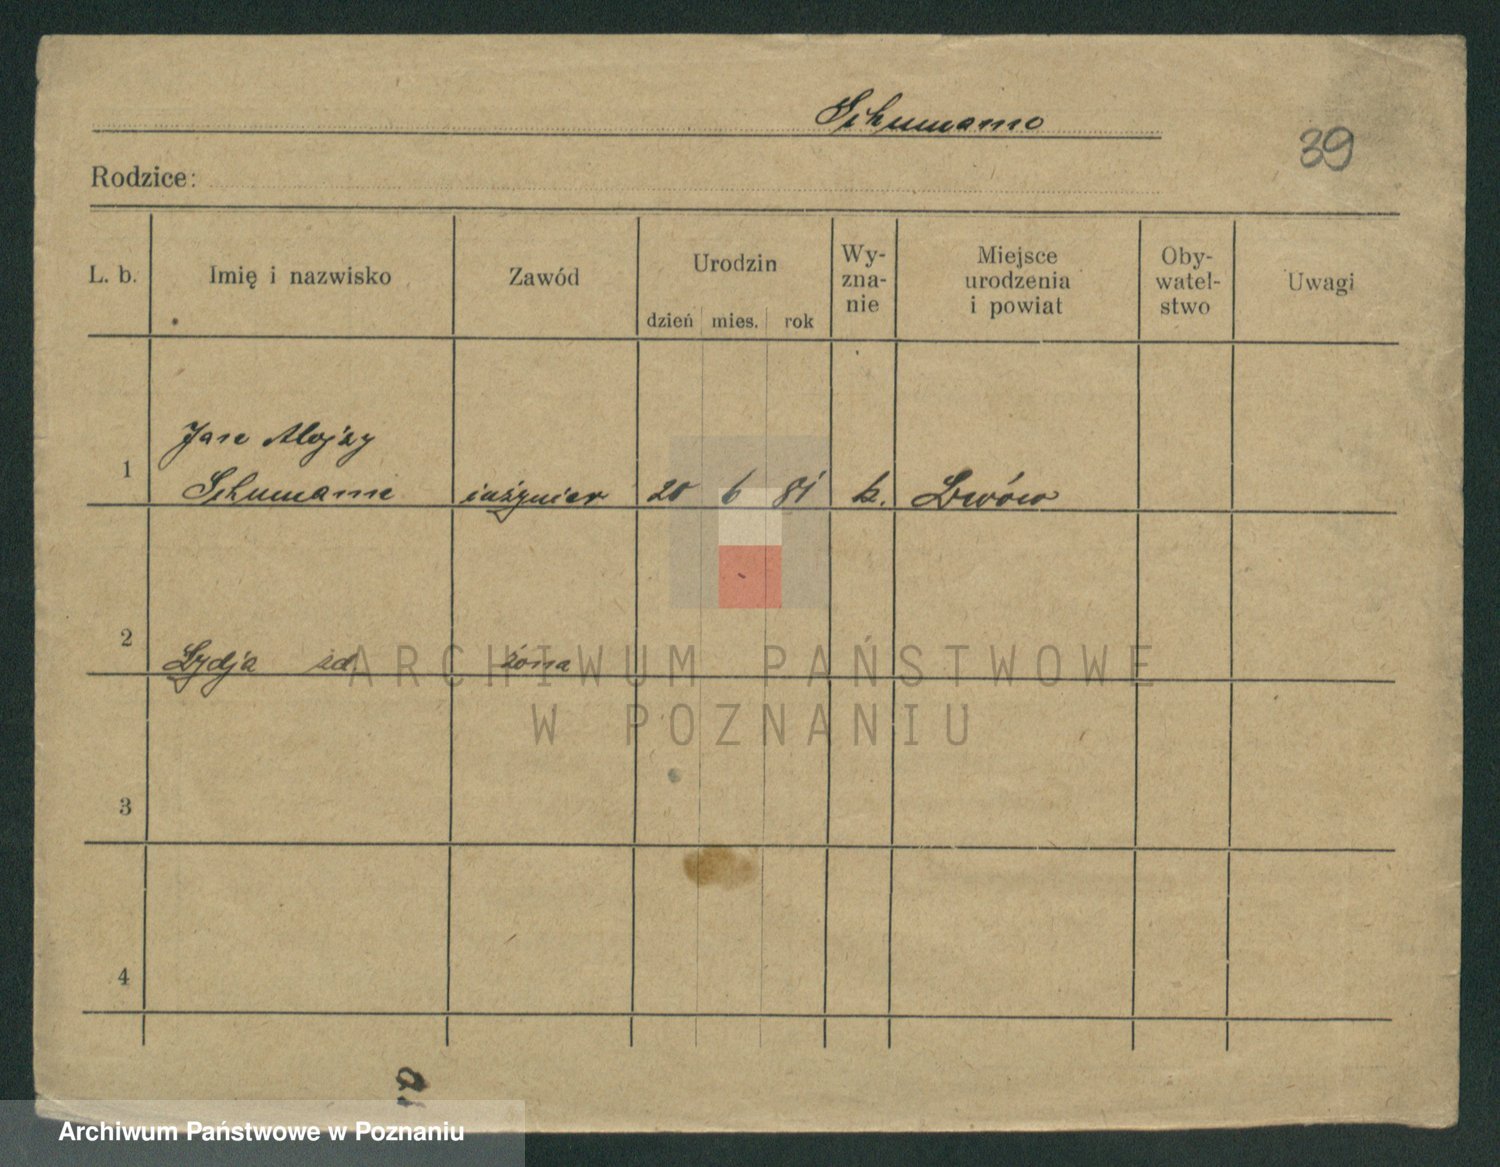 Schumann
39
Rodzice:
L. b. Imię i nazwisko Zawód Urodzin Wy- Miejsce Oby- Uwagi
zna- urodzenia watel-
nie i powiat stwo
dzień mies. rok
Jan Alojzy
1 Schumann inżynier 20 6 81 k. Lwów
2 Lydja żona
3
4
ARCHIWUM PAŃSTWOWE
W POZNANIU
Archiwum Państwowe w Poznaniu